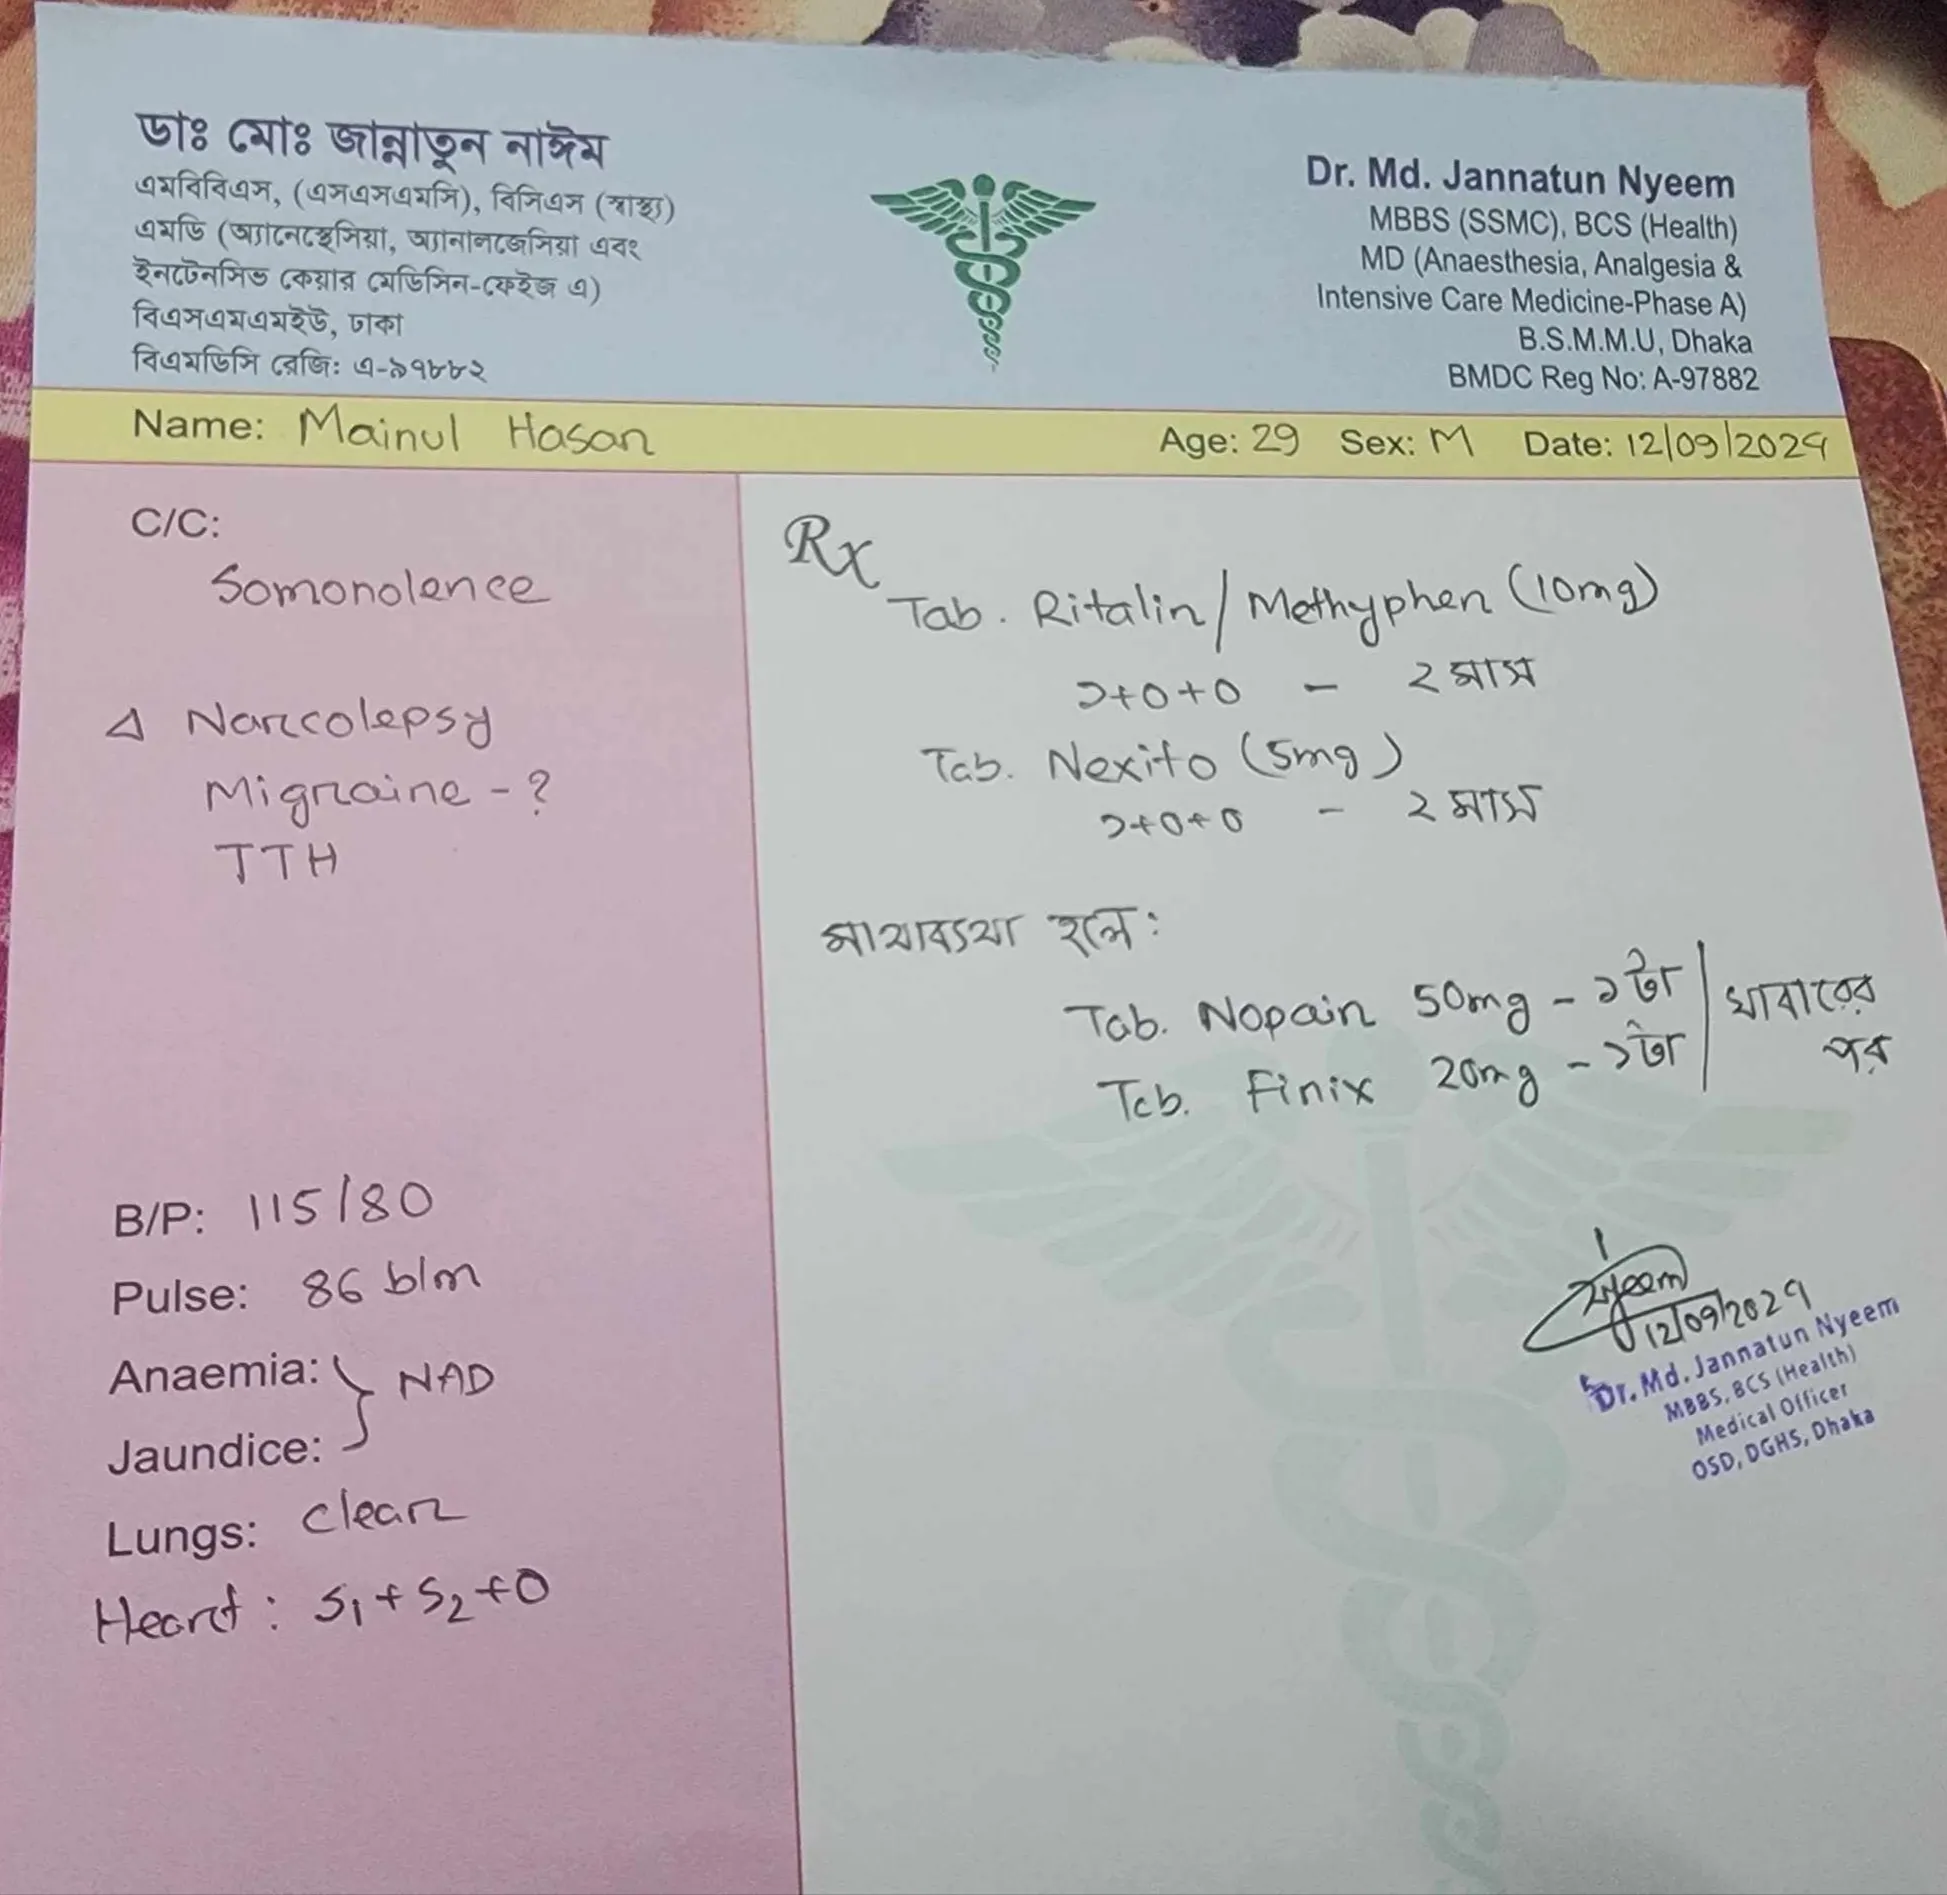 ডাঃ মোঃ জান্নাতুন নাঈম
এমবিবিএস, (এসএসএমসি), বিসিএস (স্বাস্থ্য)
এমডি (অ্যানেস্থেসিয়া, অ্যানালজেসিয়া এবং
ইনটেনসিভ কেয়ার মেডিসিন-ফেইজ এ)
বিএসএমএমইউ, ঢাকা
বিএমডিসি রেজি: এ-৯৭৮৮২
Dr. Md. Jannatun Nyeem
MBBS (SSMC), BCS (Health)
MD (Anaesthesia, Analgesia &
Intensive Care Medicine-Phase A)
B.S.M.M.U, Dhaka
BMDC Reg No: A-97882
Name: Mainul Hasan Age: 29 Sex: M Date: 12/09/2024
C/C:
Somonolence
Δ Narcolepsy
Migraine - ?
TTH
B/P: 115/80
Pulse: 86 b/m
Anaemia: } NAD
Jaundice:
Lungs: Clear
Heart: S₁ + S₂ + 0
Rx
Tab. Ritalin / Methyphen (10mg)
১+০+০ - ২ মাস
Tab. Nexito (5mg)
১+০+০ - ২ মাস
মাথাব্যথা হলে:
Tab. Nopain 50mg - ১টা | খাবারের
Tab. Finix 20mg - ১টা | পর
Nyeem
12/09/2024
Dr. Md. Jannatun Nyeem
MBBS, BCS (Health)
Medical Officer
OSD, DGHS, Dhaka